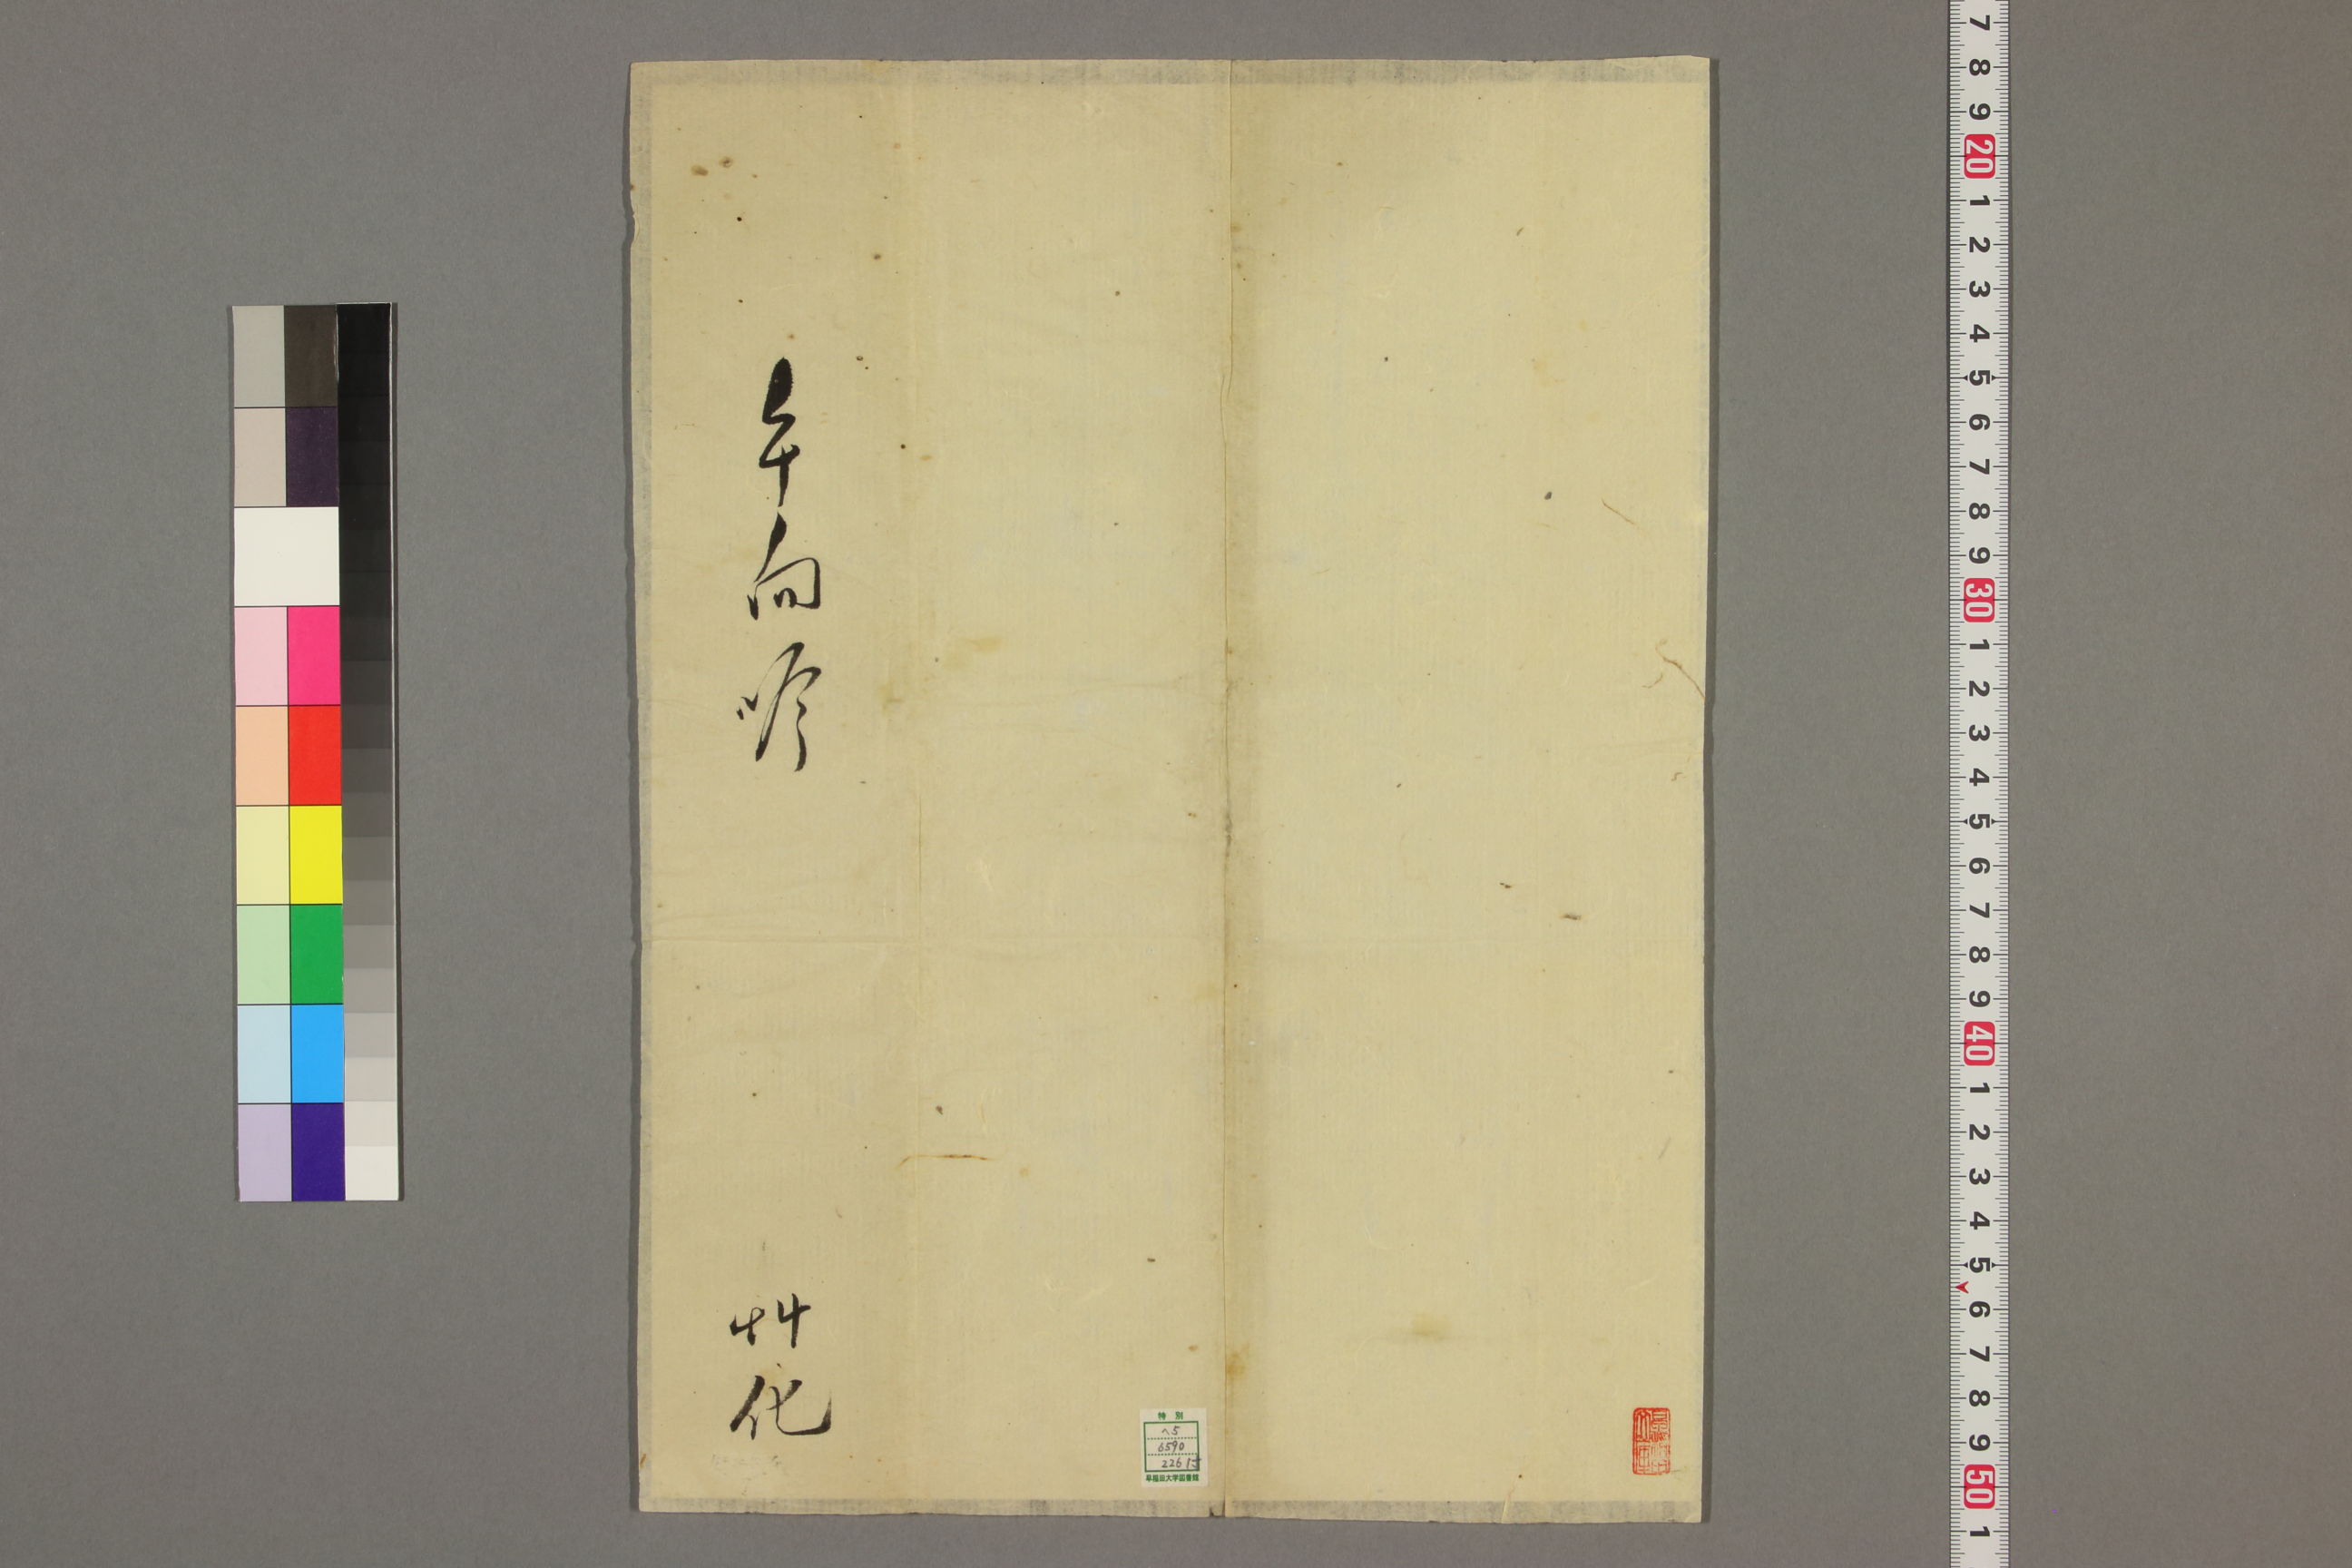 手向吟
艸化
特別
ヘ5
6590
226
早稲田大学図書館
7 8 9 20 1 2 3 4 5 6 7 8 9 30 1 2 3 4 5 6 7 8 9 40 1 2 3 4 5 6 7 8 9 50 1